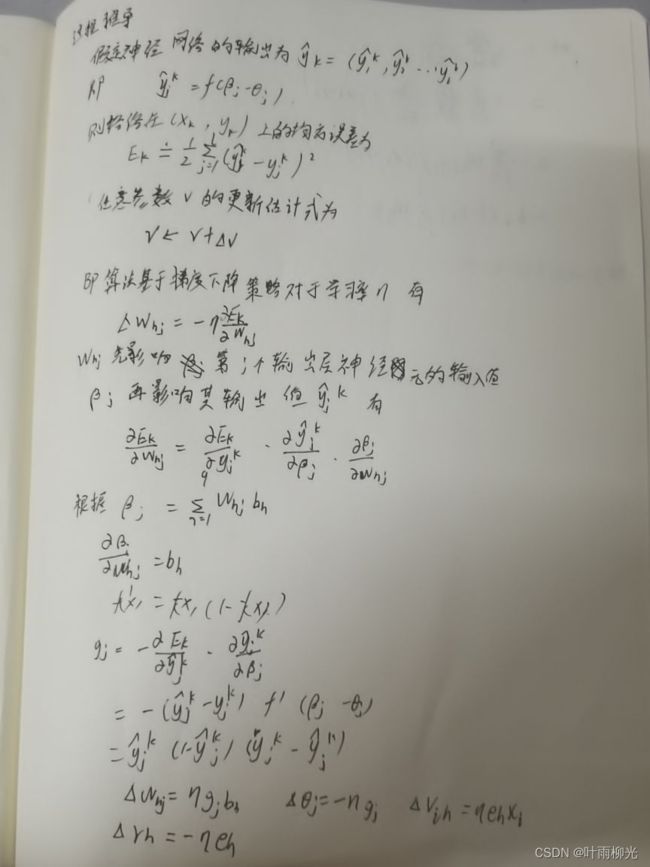 过程推导
假定神经网络的输出为 ŷk = (ŷ₁ᵏ, ŷ₂ᵏ … ŷᵢᵏ)
即 ŷⱼᵏ = f(βⱼ - θⱼ)
则网络在 (xₖ, yₖ) 上的均方误差为
Eₖ = 1/2 Σⱼ₌₁ˡ (ŷⱼᵏ - yⱼᵏ)²
任意参数 v 的更新估计式为
v ← v + Δv
BP 算法基于梯度下降策略对于学习率 η 有
Δwₕⱼ = -η ∂Eₖ/∂wₕⱼ
wₕⱼ 先影响 第 j 个输出层神经元的输入值
βⱼ 再影响其输出值 ŷⱼᵏ 有
∂Eₖ/∂wₕⱼ = ∂Eₖ/∂ŷⱼᵏ · ∂ŷⱼᵏ/∂βⱼ · ∂βⱼ/∂wₕⱼ
根据 βⱼ = Σₙ₌₁ wₕⱼ bₕ
∂βⱼ/∂wₕⱼ = bₕ
f'(x) = f(x) (1 - f(x))
gⱼ = - ∂Eₖ/∂ŷⱼᵏ · ∂ŷⱼᵏ/∂βⱼ
= - (ŷⱼᵏ - yⱼᵏ) f' (βⱼ - θⱼ)
= ŷⱼᵏ (1 - ŷⱼᵏ) (yⱼᵏ - ŷⱼᵏ)
Δwₕⱼ = η gⱼ bₕ Δθⱼ = -η gⱼ Δvᵢₕ = η eₕ xᵢ
Δrₕ = -η eₕ
CSDN @叶雨柳光